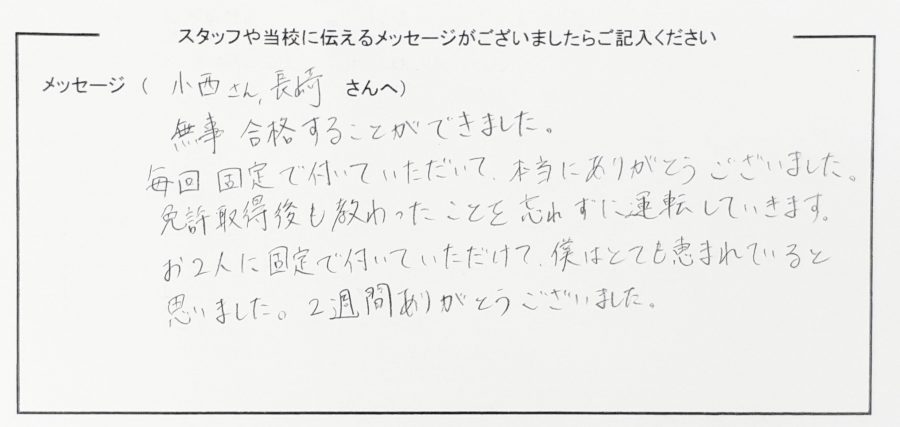 スタッフや当校に伝えるメッセージがございましたらご記入ください
メッセージ ( 小西さん,長崎 さんへ)
無事 合格することができました。
毎回 固定で付いていただいて、本当にありがとうございました。
免許取得後も教わったことを忘れずに運転していきます。
お2人に固定で付いていただけて、僕はとても恵まれていると
思いました。2週間ありがとうございました。